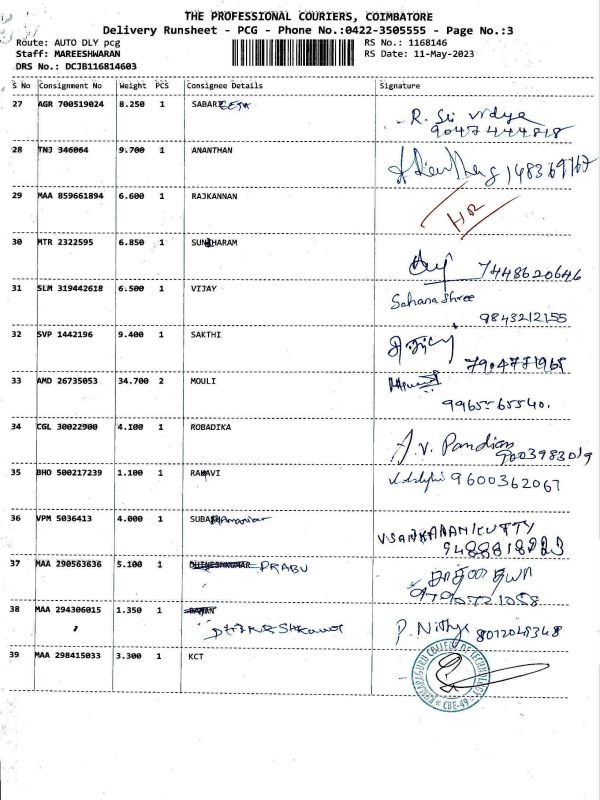 THE PROFESSIONAL COURIERS, COIMBATORE
Delivery Runsheet - PCG - Phone No.:0422-3505555 - Page No.:3
Route: AUTO DLY pcg
Staff: MAREESHWARAN
DRS No.: DCJB116814603
RS No.: 1168146
RS Date: 11-May-2023
S No Consignment No Weight PCS Consignee Details Signature
27 AGR 700519024 8.250 1 SABAREESH R. Sri Vidya
9047444818
28 TNJ 346064 9.700 1 ANANTHAN
29 MAA 859661894 6.600 1 RAJKANNAN
30 MTR 2322595 6.850 1 SUNDHARAM 7448620646
31 SLM 319442618 6.500 1 VIJAY Sahana Shree
9843212155
32 SVP 1442196 9.400 1 SAKTHI
7904771965
33 AMD 26735053 34.700 2 MOULI
9965565540.
34 CGL 30022900 4.100 1 ROBADIKA A.V. Pandian
9003983019
35 BHO 500217239 1.100 1 9600362067
36 VPM 5036413 4.000 1 V SANKARANKUTTY
37 MAA 290563636 5.100 1 PRABU
38 MAA 294306015 1.350 1 P. Nithya 8012045348
39 MAA 298415033 3.300 1 KCT
KUMARAGURU COLLEGE OF TECHNOLOGY
CBE-49